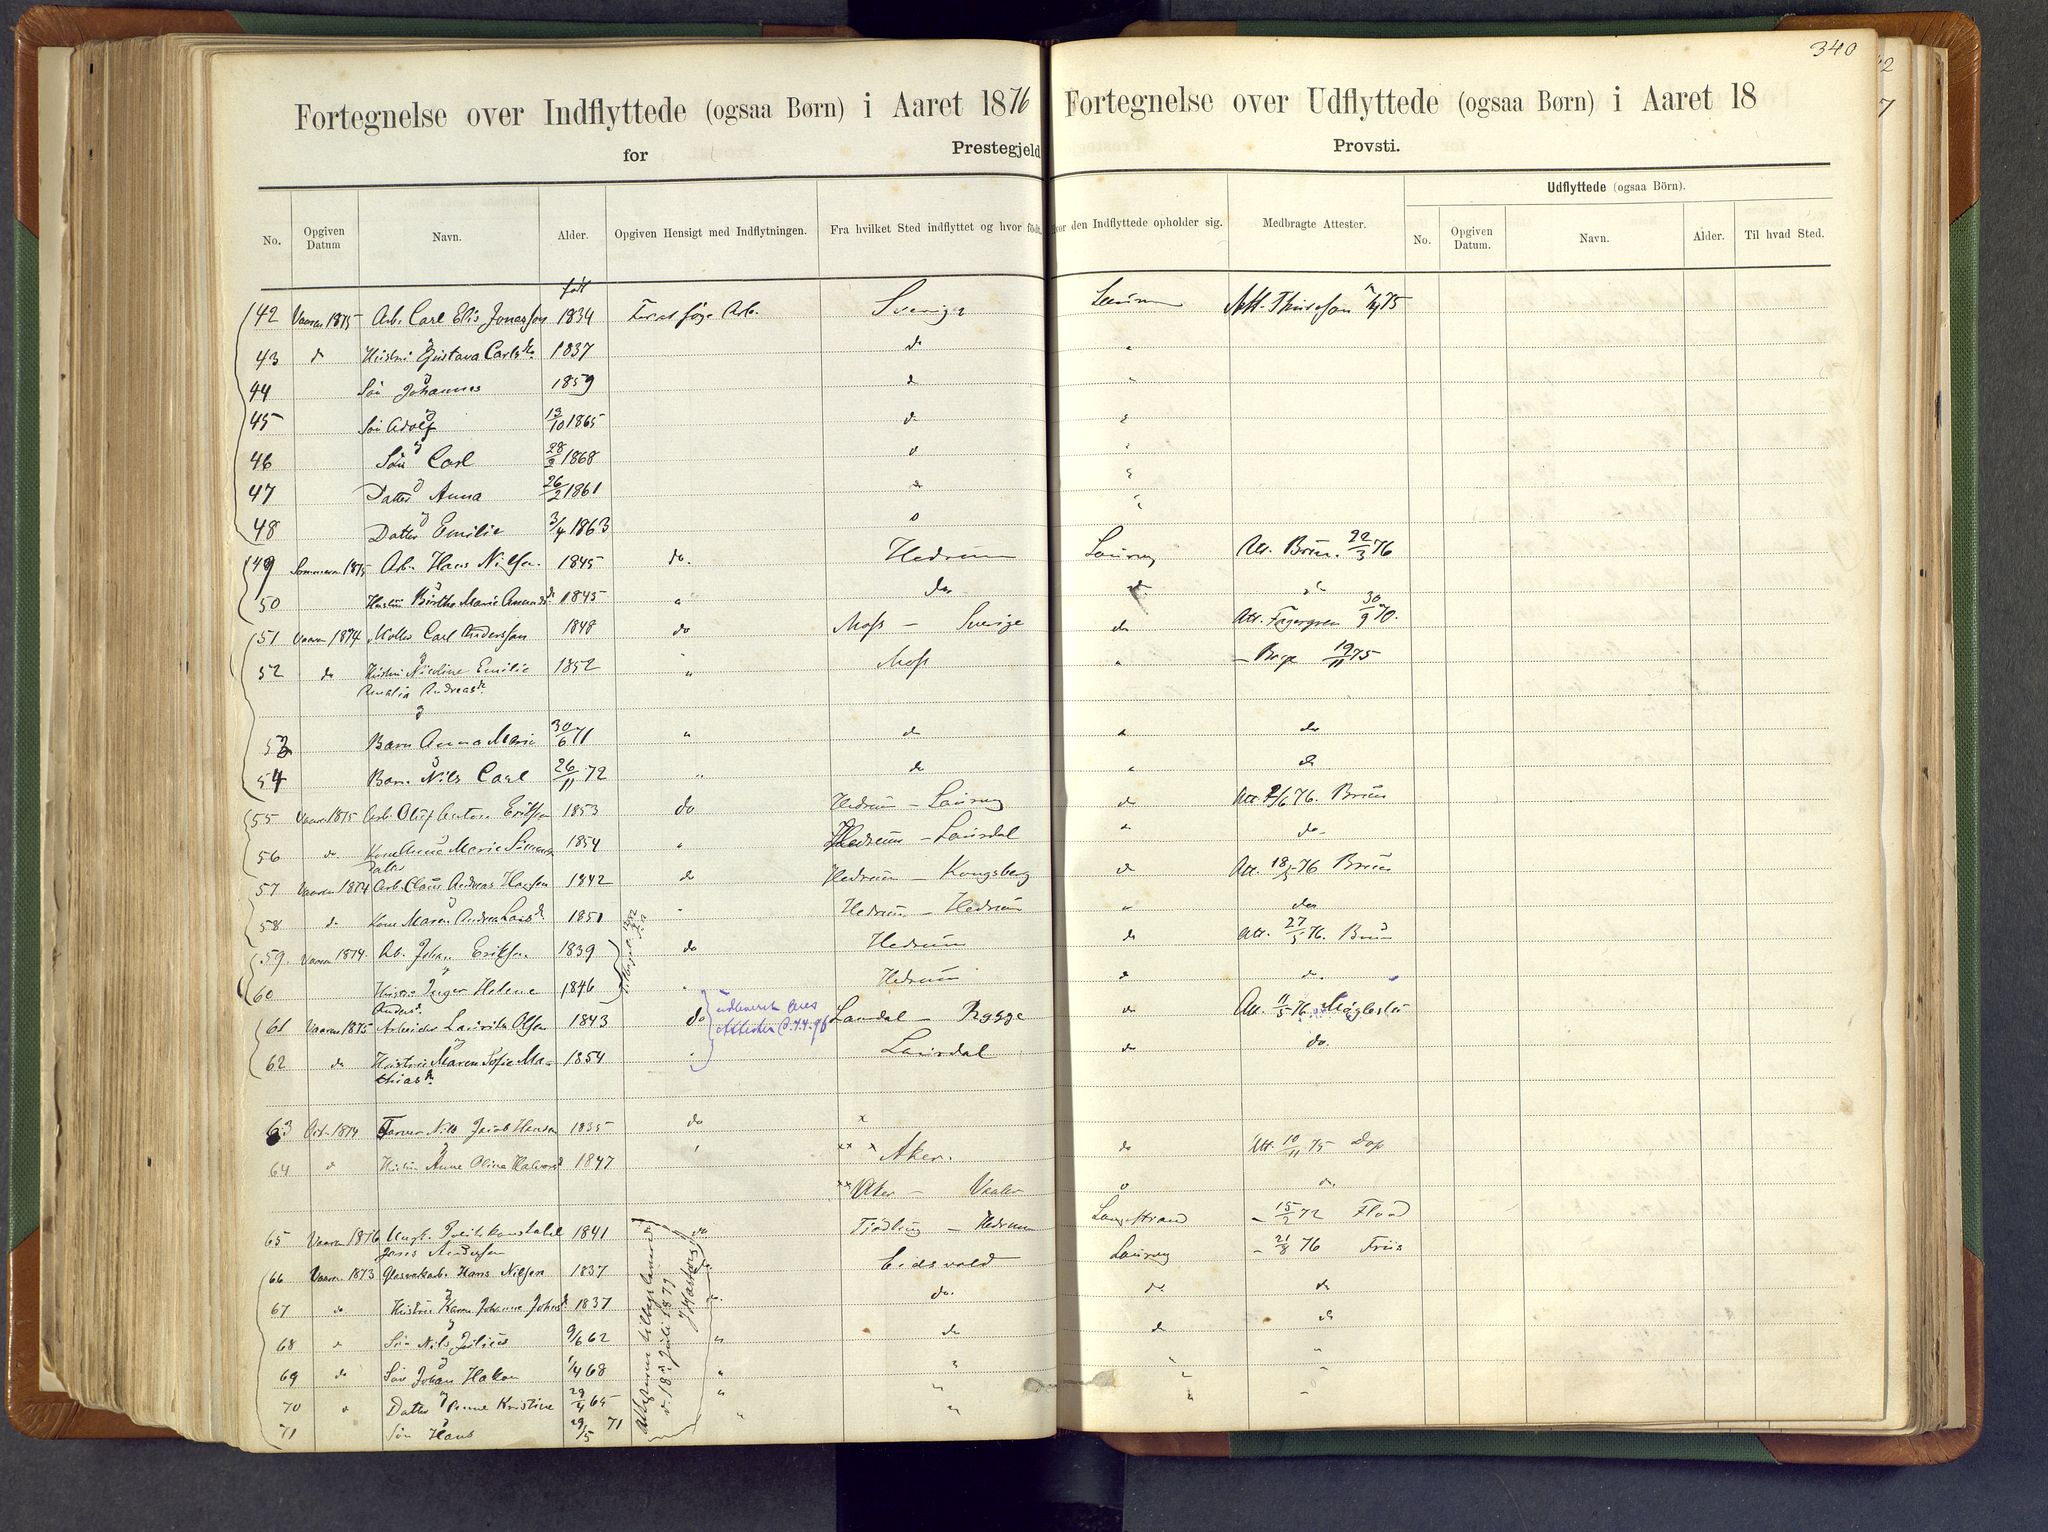 340
Fortegnelse over Indflyttede (ogsaa Børn) i Aaret 1876
for Prestegjeld
Fortegnelse over Udflyttede (ogsaa Børn) i Aaret 18
Provsti.
No. Opgiven Datum Navn. Alder. Opgiven Hensigt med Indflytningen. Fra hvilket Sted indflyttet og hvor født. Hvor den Indflyttede opholder sig. Medbragte Attester. Udflyttede (ogsaa Börn).
No. Opgiven Datum. Navn. Alder. Til hvad Sted.
født
42 Vaaren 1875 Arb. Carl Jonasson 1834 For at søge Arb. Sverige Att. 75
43 do Hustru Gustava Carlsd. 1837 do "
44 Søn Johannes 1859 d "
45 Søn Adolf 13/10 1865 do
46 Søn Carl 28/9 1868
47 Datter Anna 26/2 1861
48 Datter Emilie 3/4 1863
49 Sommeren 1875 Arb. Hans Nilsen. 1845 do. Hedrum Laurvig Att. Bruun. 22/3 76
50 Hustru Birthe Marie 1845 " do do
51 Vaaren 1874 Møller Carl Andersson 1848 do Moss – Sverige do Att. Fagergren 30/9 70.
52 do Hustru Nicoline Emilie 1852 " Moss " – 19/11 75
Amalia Andreasd.
53 Barn Anna Marie 30/6 71 " do " do
54 Barn Nils Carl 26/11 72 " do " do
55 Vaaren 1875 Arb. Oluf Anton Eriksen 1853 do Hedrum – Laurvig do Att. 2/6 76. Bruun
56 do Kone Anne Marie 1854 " Hedrum – Laurdal " do
Datter
57 Vaaren 1874 Arb. Claus Andreas Hansen 1842 do Hedrum – Kongsberg d Att. 18/5 76 Bruun
58 do Kone Maren Andrea Larsd. 1851 " Hedrum – Hedrum " do
59. Vaaren 1874. Arb. Johan Eriksen 1839 do Hedrum do Att. 27/5 76. Bruun
60 Hustru Inger Helene 1846 " Hedrum d do.
Andersd.
61 Vaaren 1875 Arbeider Laurits Olsen 1843 do Laurdal – Rygge do Att. 11/5 76
62 do Hustru Maren Sofie Ma- 1854 " Laurdal do do.
thiasd.
63 Oct. 1874 Nils Jacob Hansen 1835 do x
64 d Hustru Anne Oline 1847 xx x Aker. do Att. 10/11 75 Dop
xx Aker – Vaaler do
65 Vaaren 1876 Ungk. Politikonstabel 1841 do Tjødling – Hedrum Langestrand – 15/2 72 Flood
Andersen
66 Vaaren 1873 Glasværksarb. Hans Nilsen 1837 do Eidsvold Laurvig – 21/8 76 Friis
67 do Hustru Karen Johanne 1837 " do. do do
68 d Søn Nils Julius 9/6 62 " do do do
69 do Søn Johan Hakon 1/4 68 " " "
70 Datter Anne Kristine 29/4 65 " " "
71 Søn Hans 29/5 71 "
Attesterne tilbagelaante
d. 18. juli 1879